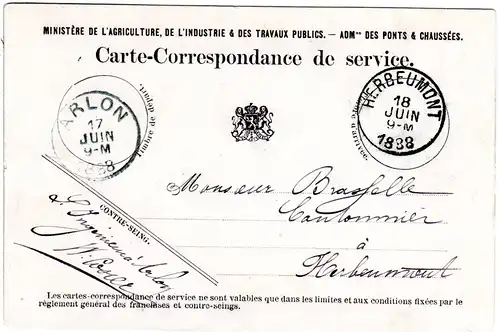 MINISTÈRE DE L'AGRICULTURE, DE L'INDUSTRIE & DES TRAVAUX PUBLICS. — ADMᵒⁿ DES PONTS & CHAUSSÉES.
Carte-Correspondance de service.
ARLON
17
JUIN
9-M
1888
Timbre de départ.
HERBEUMONT
18
JUIN
9-M
1888
d'arrivée.
Monsieur Brasselle
Cantonnier
à
Herbeumont
CONTRE-SEING.
L'Ingénieur à Arlon
Les cartes-correspondance de service ne sont valables que dans les limites et aux conditions fixées par le
règlement général des franchises et contre-seings.